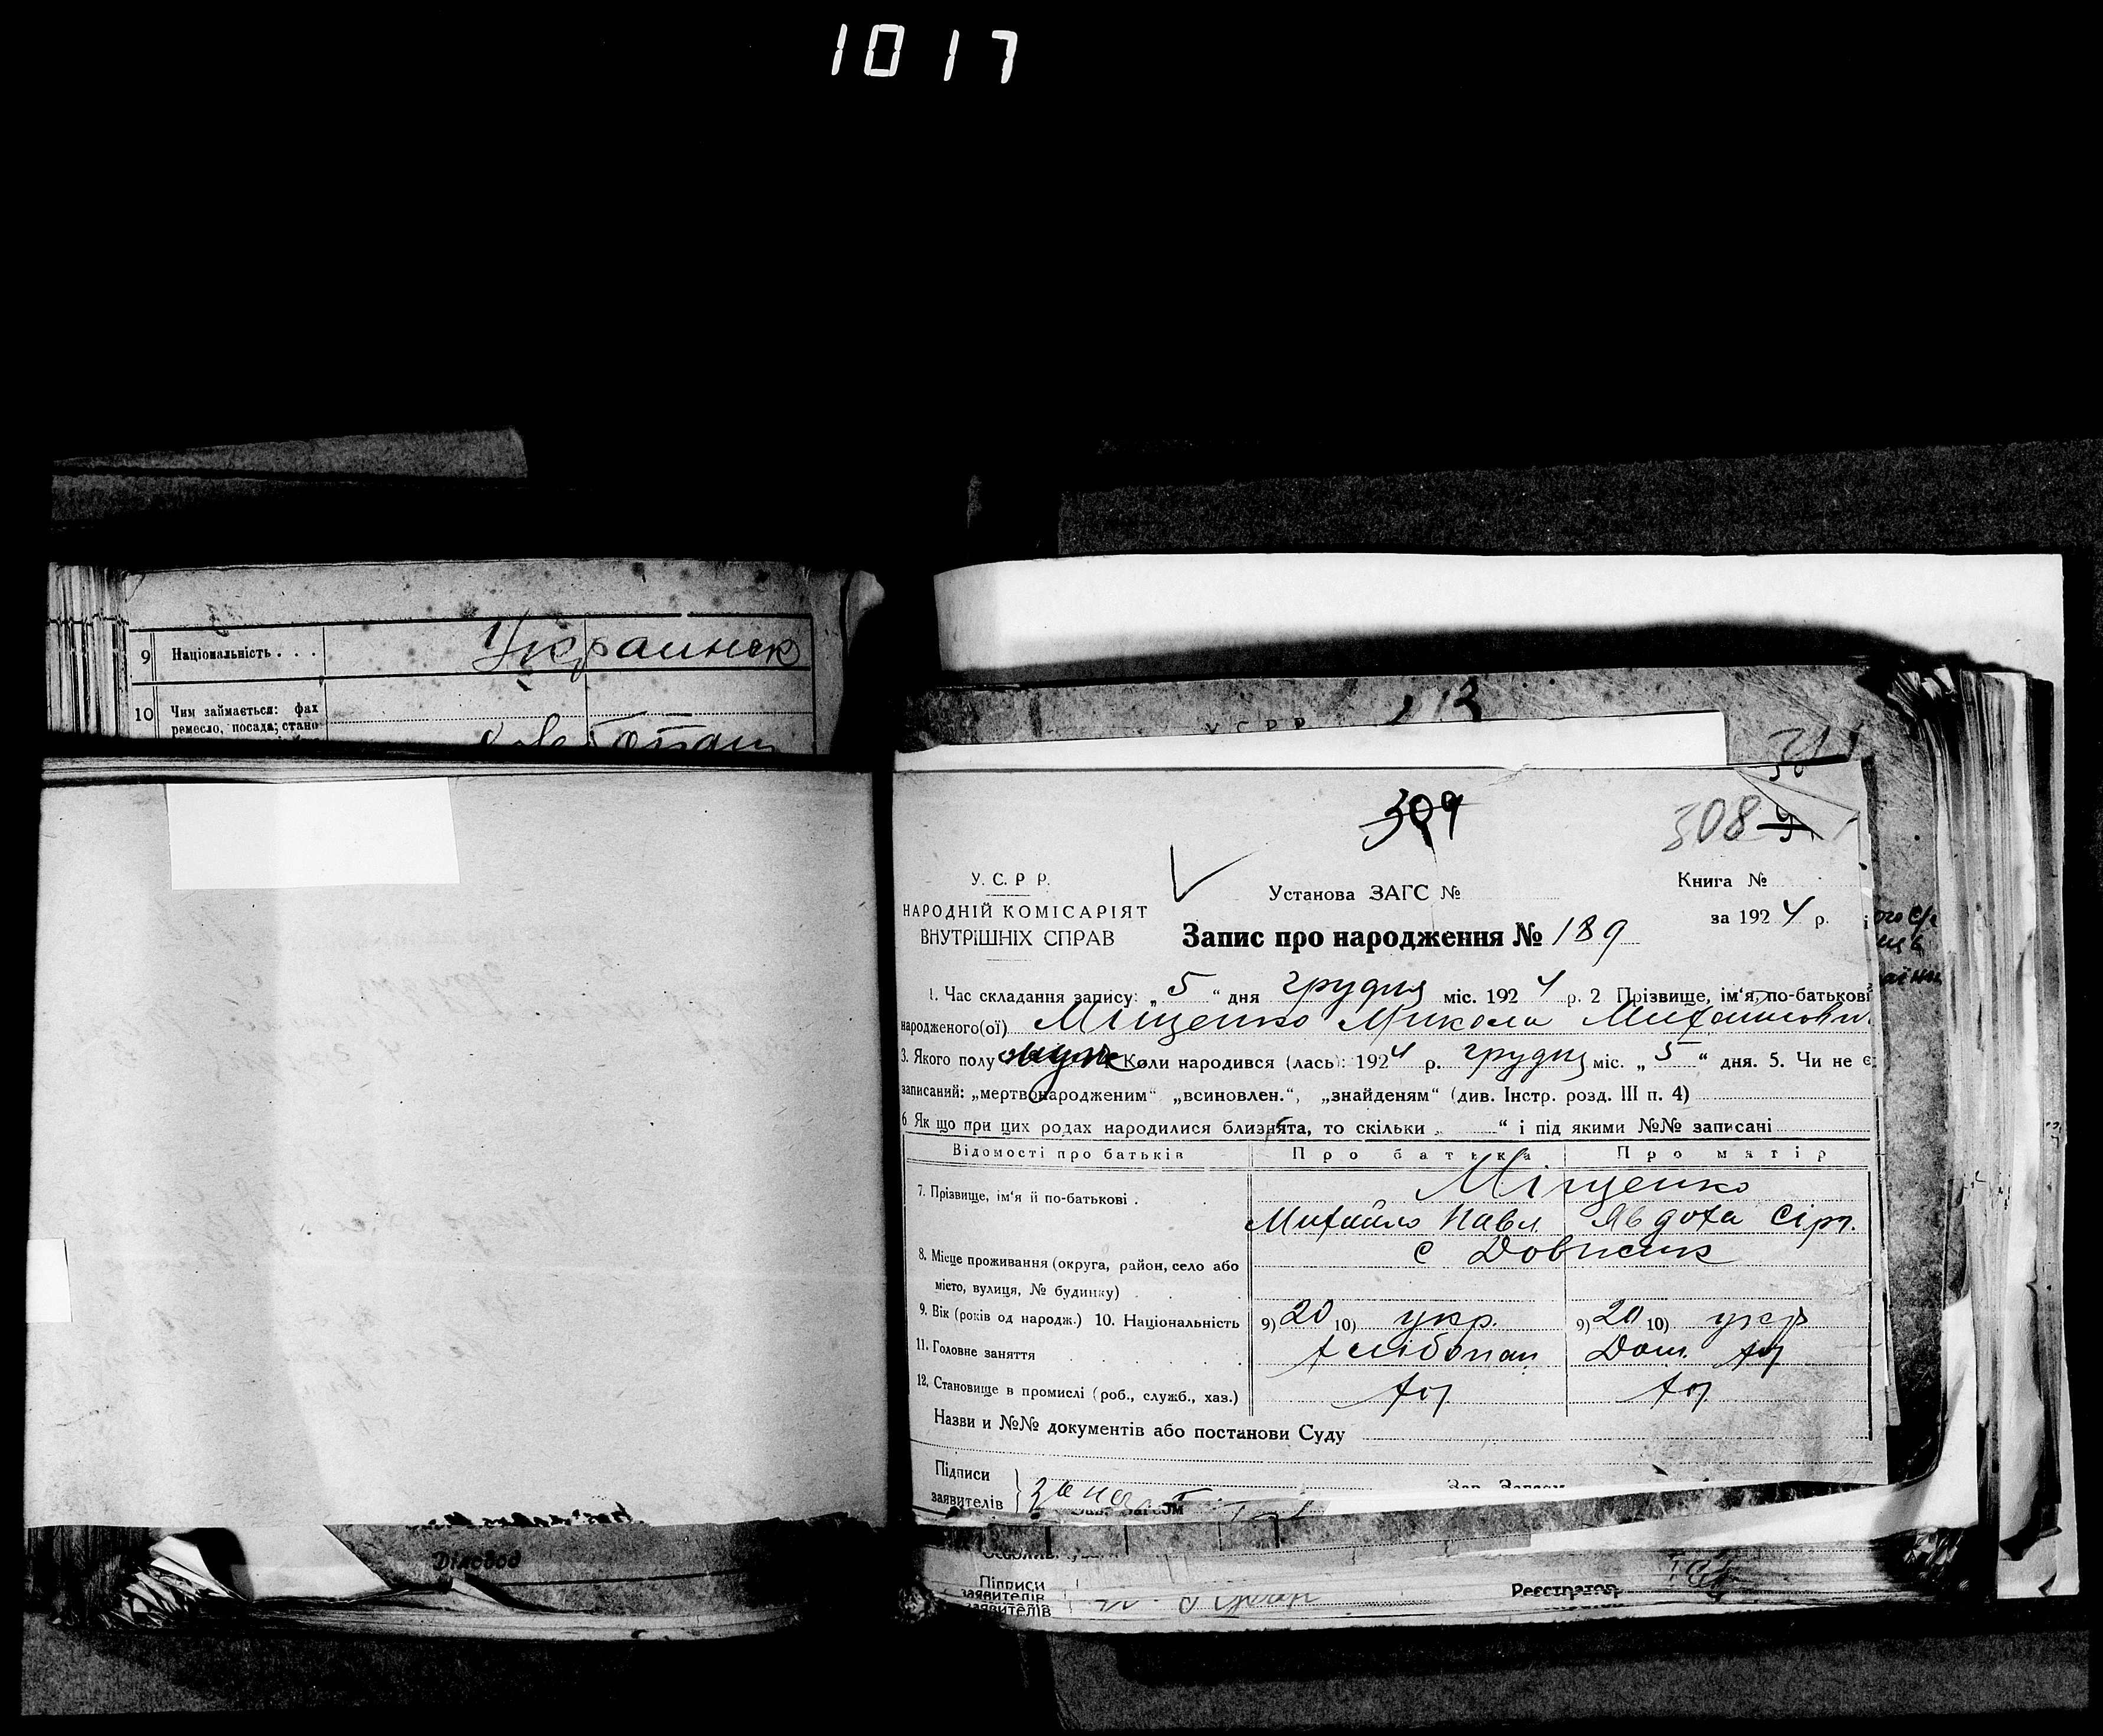 1017
9 Національність . . . Украинск
10 Чим займається: фах
ремесло, посада, стано-
Діловод
У.С.Р.Р.
309
308
У. С. Р. Р.
НАРОДНІЙ КОМІСАРІЯТ
ВНУТРІШНІХ СПРАВ
Установа ЗАГС №
Книга №
за 1924 р.
Запис про народження № 189
1. Час складання запису: „5“ дня грудня міс. 1924 р. 2 Прізвище, ім‘я, по-батькові
народженого(ої) Міщенко Микола Михайлович
3. Якого полу муж Коли народився (лась): 1924 р. грудня міс. „5“ дня. 5. Чи не є
записаний: „мертвонародженим“ „всиновлен.“, „знайденям“ (див. Інстр. розд. III п. 4)
6 Як що при цих родах народилися близнята, то скільки „ “ і під якими №№ записані
Відомості про батьків Про батька Про матір
7. Прізвище, ім‘я й по-батькові . Міщенко
Михайло Павл. Явдоха Сірг.
8. Місце проживання (округа, район, село або с Довжик
місто, вулиця, № будинку)
9. Вік (років од народж.) 10. Національність 9) 20 10) укр. 9) 20 10) укр
11. Головне заняття хлібопаш Дом. хоз
12. Становище в промислі (роб., служб., хаз.) хоз. хоз.
Назви и №№ документів або постанови Суду
Підписи
заявителів
Зав. Загсом
Зав. Загсом
Підписи
заявителів
заявителів
Реєстратор